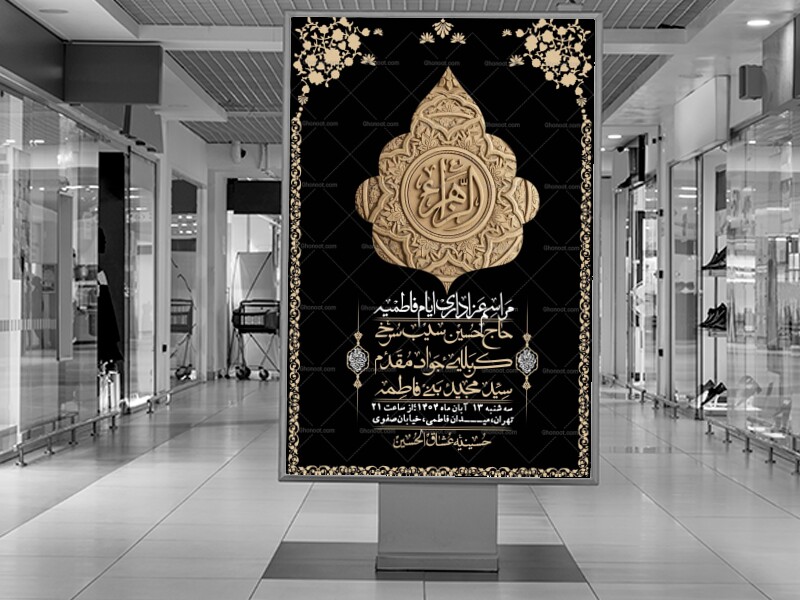 الزهراء
مراسم عزاداری ایام فاطمیه
حاج حسین سیب سرخی
کربلایی جواد مقدم
سید مجید بنی فاطمه
سه شنبه ۱۳ آبان ماه ۱۴۰۴ از ساعت ۲۱
تهران، میدان فاطمی، خیابان صفوی
حسینیه عشاق الحسین
Ghonoot.com